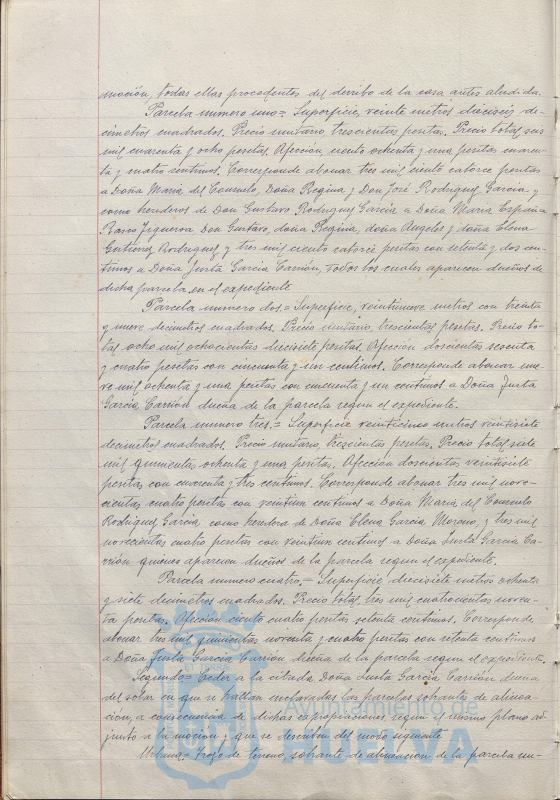 moción, todas ellas procedentes del derribo de la casa antes aludida.
Parcela numero uno = Superficie, veinte metros dieciseis de-
cimetros cuadrados. Precio unitario trescientas pesetas. Precio total seis
mil cuarenta y ocho pesetas. Afección ciento ochenta y una pesetas cuaren-
ta y cuatro centimos. Corresponde abonar tres mil ciento catorce pesetas
a Doña Maria del Consuelo, Doña Regina y Don José Rodriguez Garcia y
como herederos de Don Gustavo Rodriguez Garcia a Doña Maria España
Rasco Figueroa Don Gustavo, doña Regina, doña Angeles y doña Elena
Gutierrez Rodriguez y tres mil ciento catorce pesetas con setenta y dos cen-
timos a Doña Justa Garcia Carrión, todos los cuales aparecen dueños de
dicha parcela en el expediente
Parcela numero dos. = Superficie, veintinueve metros con treinta
y nueve decimetros cuadrados. Precio unitario, trescientas pesetas. Precio to-
tal ocho mil ochocientas diecisiete pesetas. Afección doscientas sesenta
y cuatro pesetas con cincuenta y un centimos. Corresponde abonar nue-
ve mil ochenta y una pesetas con cincuenta y un centimos a Doña Justa
Garcia Carrión dueña de la parcela segun el expediente.
Parcela numero tres. = Superficie veinticinco metros veintisiete
decimetros cuadrados. Precio unitario, trescientas pesetas. Precio total siete
mil quinientas ochenta y una pesetas. Afección doscientas veintisiete
pesetas con cuarenta y tres centimos. Corresponde abonar tres mil nove-
cientas cuatro pesetas con veintiun centimos a Doña Maria del Consuelo
Rodriguez Garcia como heredera de Doña Elena Garcia Moreno, y tres mil
novecientas cuatro pesetas con veintiun centimos a Doña Justa Garcia Ca-
rrión quienes aparecen dueños de la parcela segun el expediente.
Parcela numero cuatro. = Superficie diecisiete metros ochenta
y siete decimetros cuadrados. Precio total, tres mil cuatrocientas noven-
ta pesetas. Afección ciento cuatro pesetas setenta centimos. Corresponde
abonar tres mil quinientas noventa y cuatro pesetas con setenta centimos
a Doña Justa Garcia Carrión dueña de la parcela segun el expediente.
Segundo = Ceder a la citada Doña Justa Garcia Carrión dueña
del solar en que se hallan enclavadas las parcelas sobrantes de alinea-
ción, a consecuencia de dichas expropiaciones segun el mismo plano ad-
junto a la moción y que se describen del modo siguiente
Urbana = Trozo de terreno sobrante de alineación de la parcela nu-
Ayuntamiento de
HUELVA